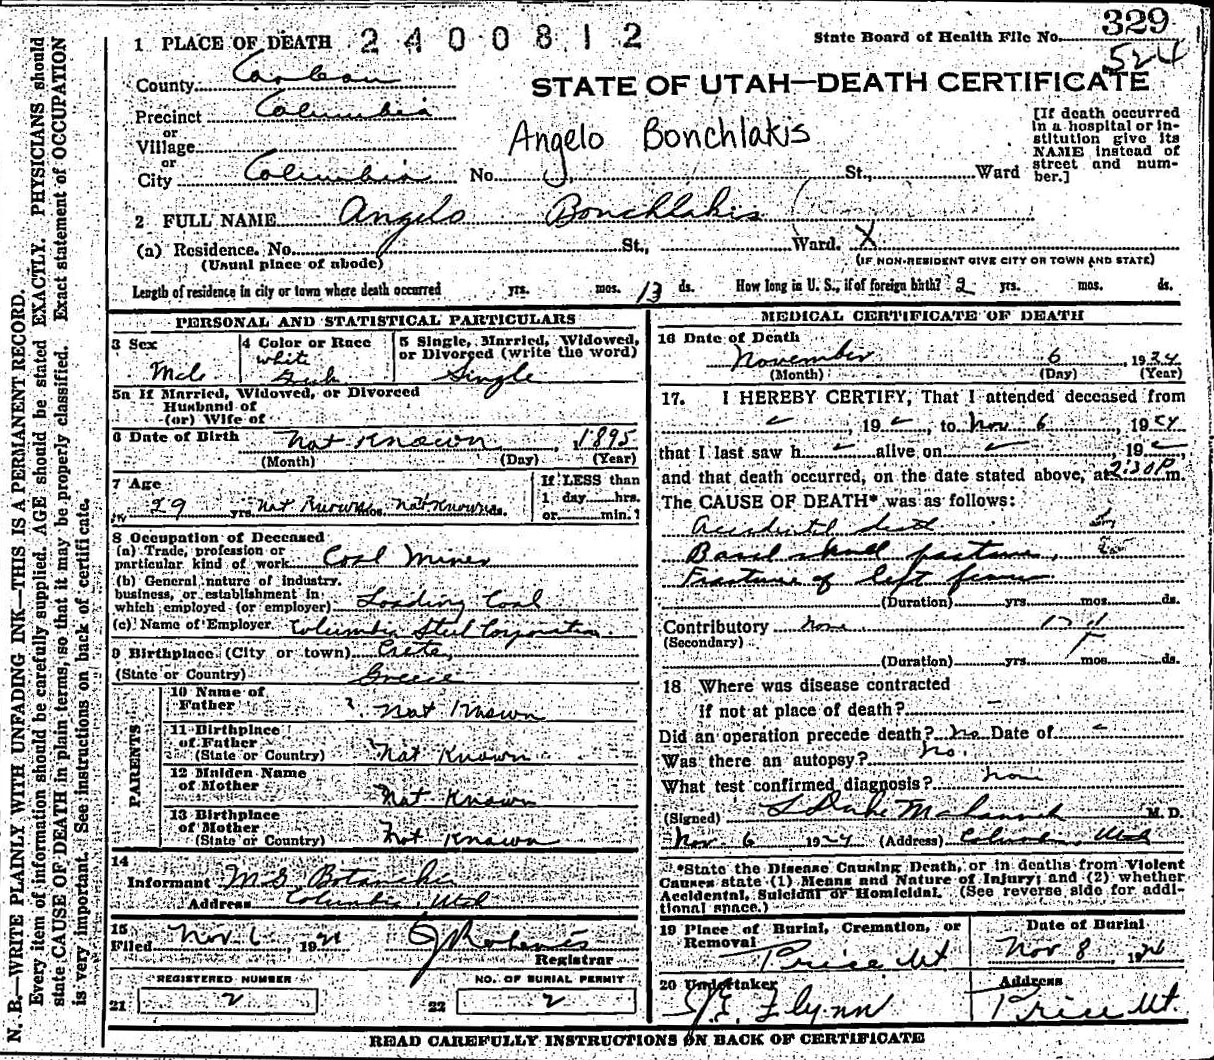 329
524
1 PLACE OF DEATH 2400812 State Board of Health File No.
County Carbon
STATE OF UTAH—DEATH CERTIFICATE
Precinct Columbia
or
Village
or
City Columbia No. St., Ward
Angelo Bonchlakis
[If death occurred
in a hospital or in-
stitution give its
NAME instead of
street and num-
ber.]
2 FULL NAME Angelo Bonchlakis
(a) Residence. No. St., Ward. X
(Usual place of abode) (IF NON-RESIDENT GIVE CITY OR TOWN AND STATE)
Length of residence in city or town where death occurred yrs. mos. 13 ds. How long in U. S., if of foreign birth? 2 yrs. mos. ds.
PERSONAL AND STATISTICAL PARTICULARS
3 Sex
Male
4 Color or Race
white
Greek
5 Single, Married, Widowed,
or Divorced (write the word)
Single
5a If Married, Widowed, or Divorced
Husband of
(or) Wife of
6 Date of Birth Not Known, 1895
(Month) (Day) (Year)
7 Age
29 yrs. Not Known mos. Not Known ds.
If LESS than
1 day hrs.
or min.?
8 Occupation of Deceased
(a) Trade, profession or
particular kind of work Coal Miner
(b) General nature of industry,
business, or establishment in
which employed (or employer) Loading Coal
(c) Name of Employer Columbia Steel Corporation.
9 Birthplace (City or town) Crete,
(State or Country) Greece
PARENTS
10 Name of
Father Not Known
11 Birthplace
of Father
(State or Country) Not Known
12 Maiden Name
of Mother Not Known
13 Birthplace
of Mother
(State or Country) Not Known
14
Informant M G
Address Columbia, Utah
15
Filed Nov 6, 192
Registrar
REGISTERED NUMBER
21 2
NO. OF BURIAL PERMIT
22 2
MEDICAL CERTIFICATE OF DEATH
16 Date of Death
November 6 1924
(Month) (Day) (Year)
17. I HEREBY CERTIFY, That I attended deceased from
, 19 , to Nov 6, 1924
that I last saw h alive on , 19
and that death occurred, on the date stated above, at 2:30 P m.
The CAUSE OF DEATH* was as follows:
Accidental death
Basal skull fracture,
Fracture of left femur
(Duration) yrs. mos. ds.
Contributory none
(Secondary)
(Duration) yrs. mos. ds.
18 Where was disease contracted
if not at place of death? –
Did an operation precede death? No Date of –
Was there an autopsy? No.
What test confirmed diagnosis? none
(Signed) M. D.
Nov. 6 1924 (Address) Columbia, Utah
*State the Disease Causing Death, or in deaths from Violent
Causes state (1) Means and Nature of Injury; and (2) whether
Accidental, Suicidal or Homicidal. (See reverse side for addi-
tional space.)
19 Place of Burial, Cremation, or
Removal
Price Ut
Date of Burial
Nov 8, 192
20 Undertaker
J. E. Flynn
Address
Price Ut.
READ CAREFULLY INSTRUCTIONS ON BACK OF CERTIFICATE
N. B.—WRITE PLAINLY WITH UNFADING INK—THIS IS A PERMANENT RECORD.
Every item of information should be carefully supplied. AGE should be stated EXACTLY. PHYSICIANS should
state CAUSE OF DEATH in plain terms, so that it may be properly classified. Exact statement of OCCUPATION
is very important. See instructions on back of certificate.